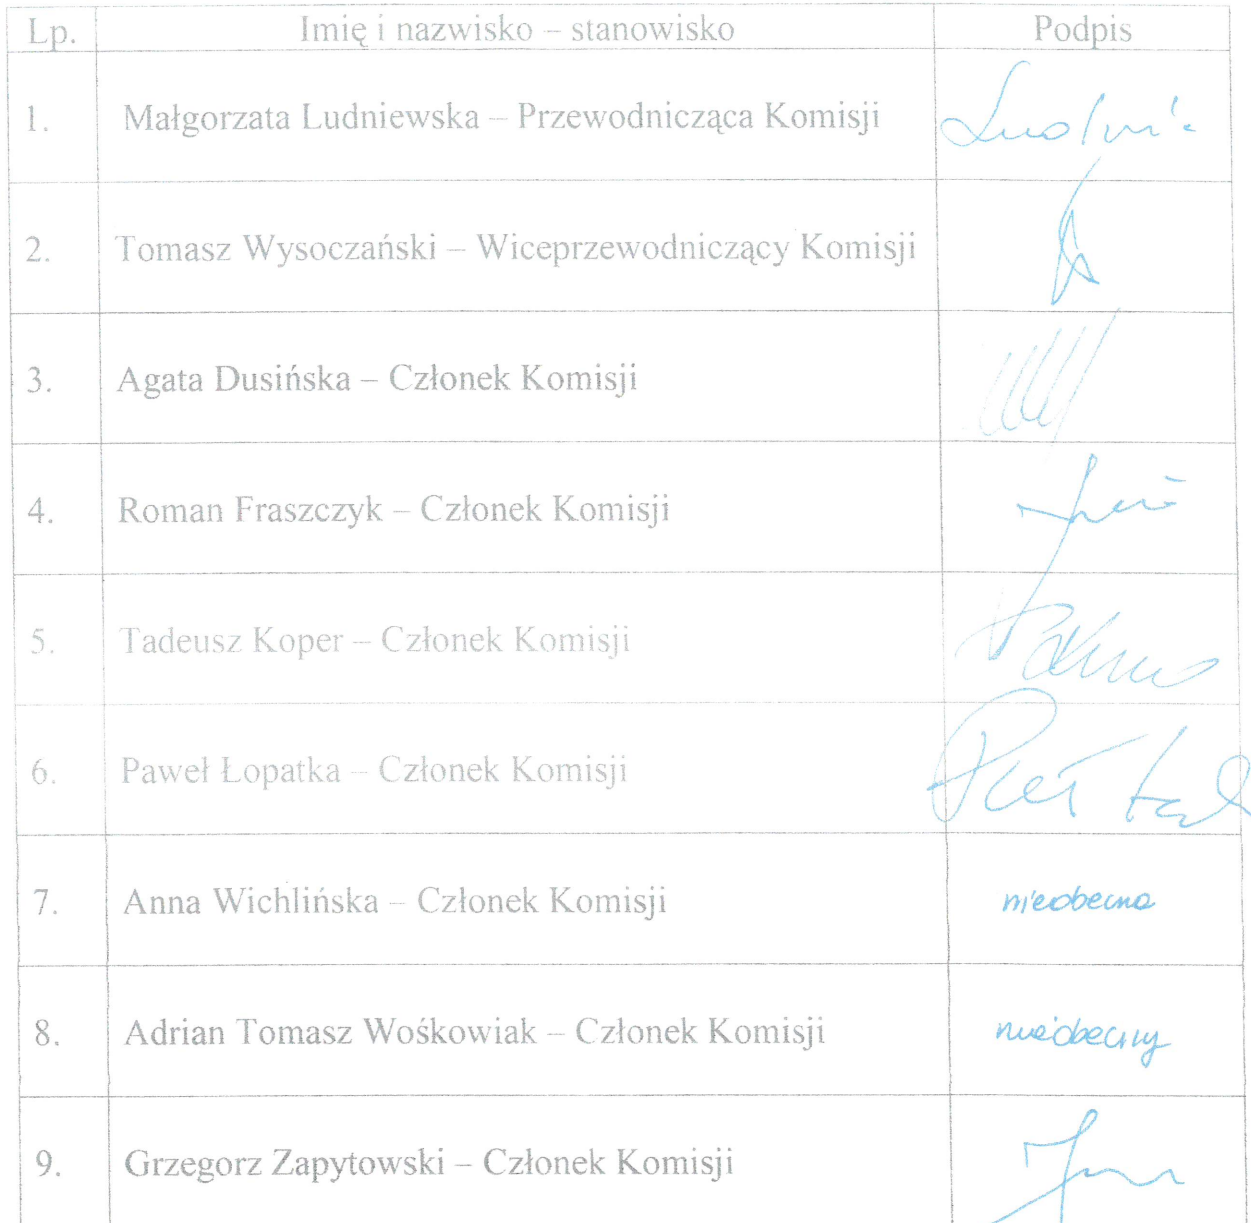 Lp. Imię i nazwisko – stanowisko Podpis
1. Małgorzata Ludniewska – Przewodnicząca Komisji
2. Tomasz Wysoczański – Wiceprzewodniczący Komisji
3. Agata Dusińska – Członek Komisji
4. Roman Fraszczyk – Członek Komisji
5. Tadeusz Koper – Członek Komisji
6. Paweł Łopatka – Członek Komisji
7. Anna Wichlińska – Członek Komisji nieobecna
8. Adrian Tomasz Wośkowiak – Członek Komisji nieobecny
9. Grzegorz Zapytowski – Członek Komisji